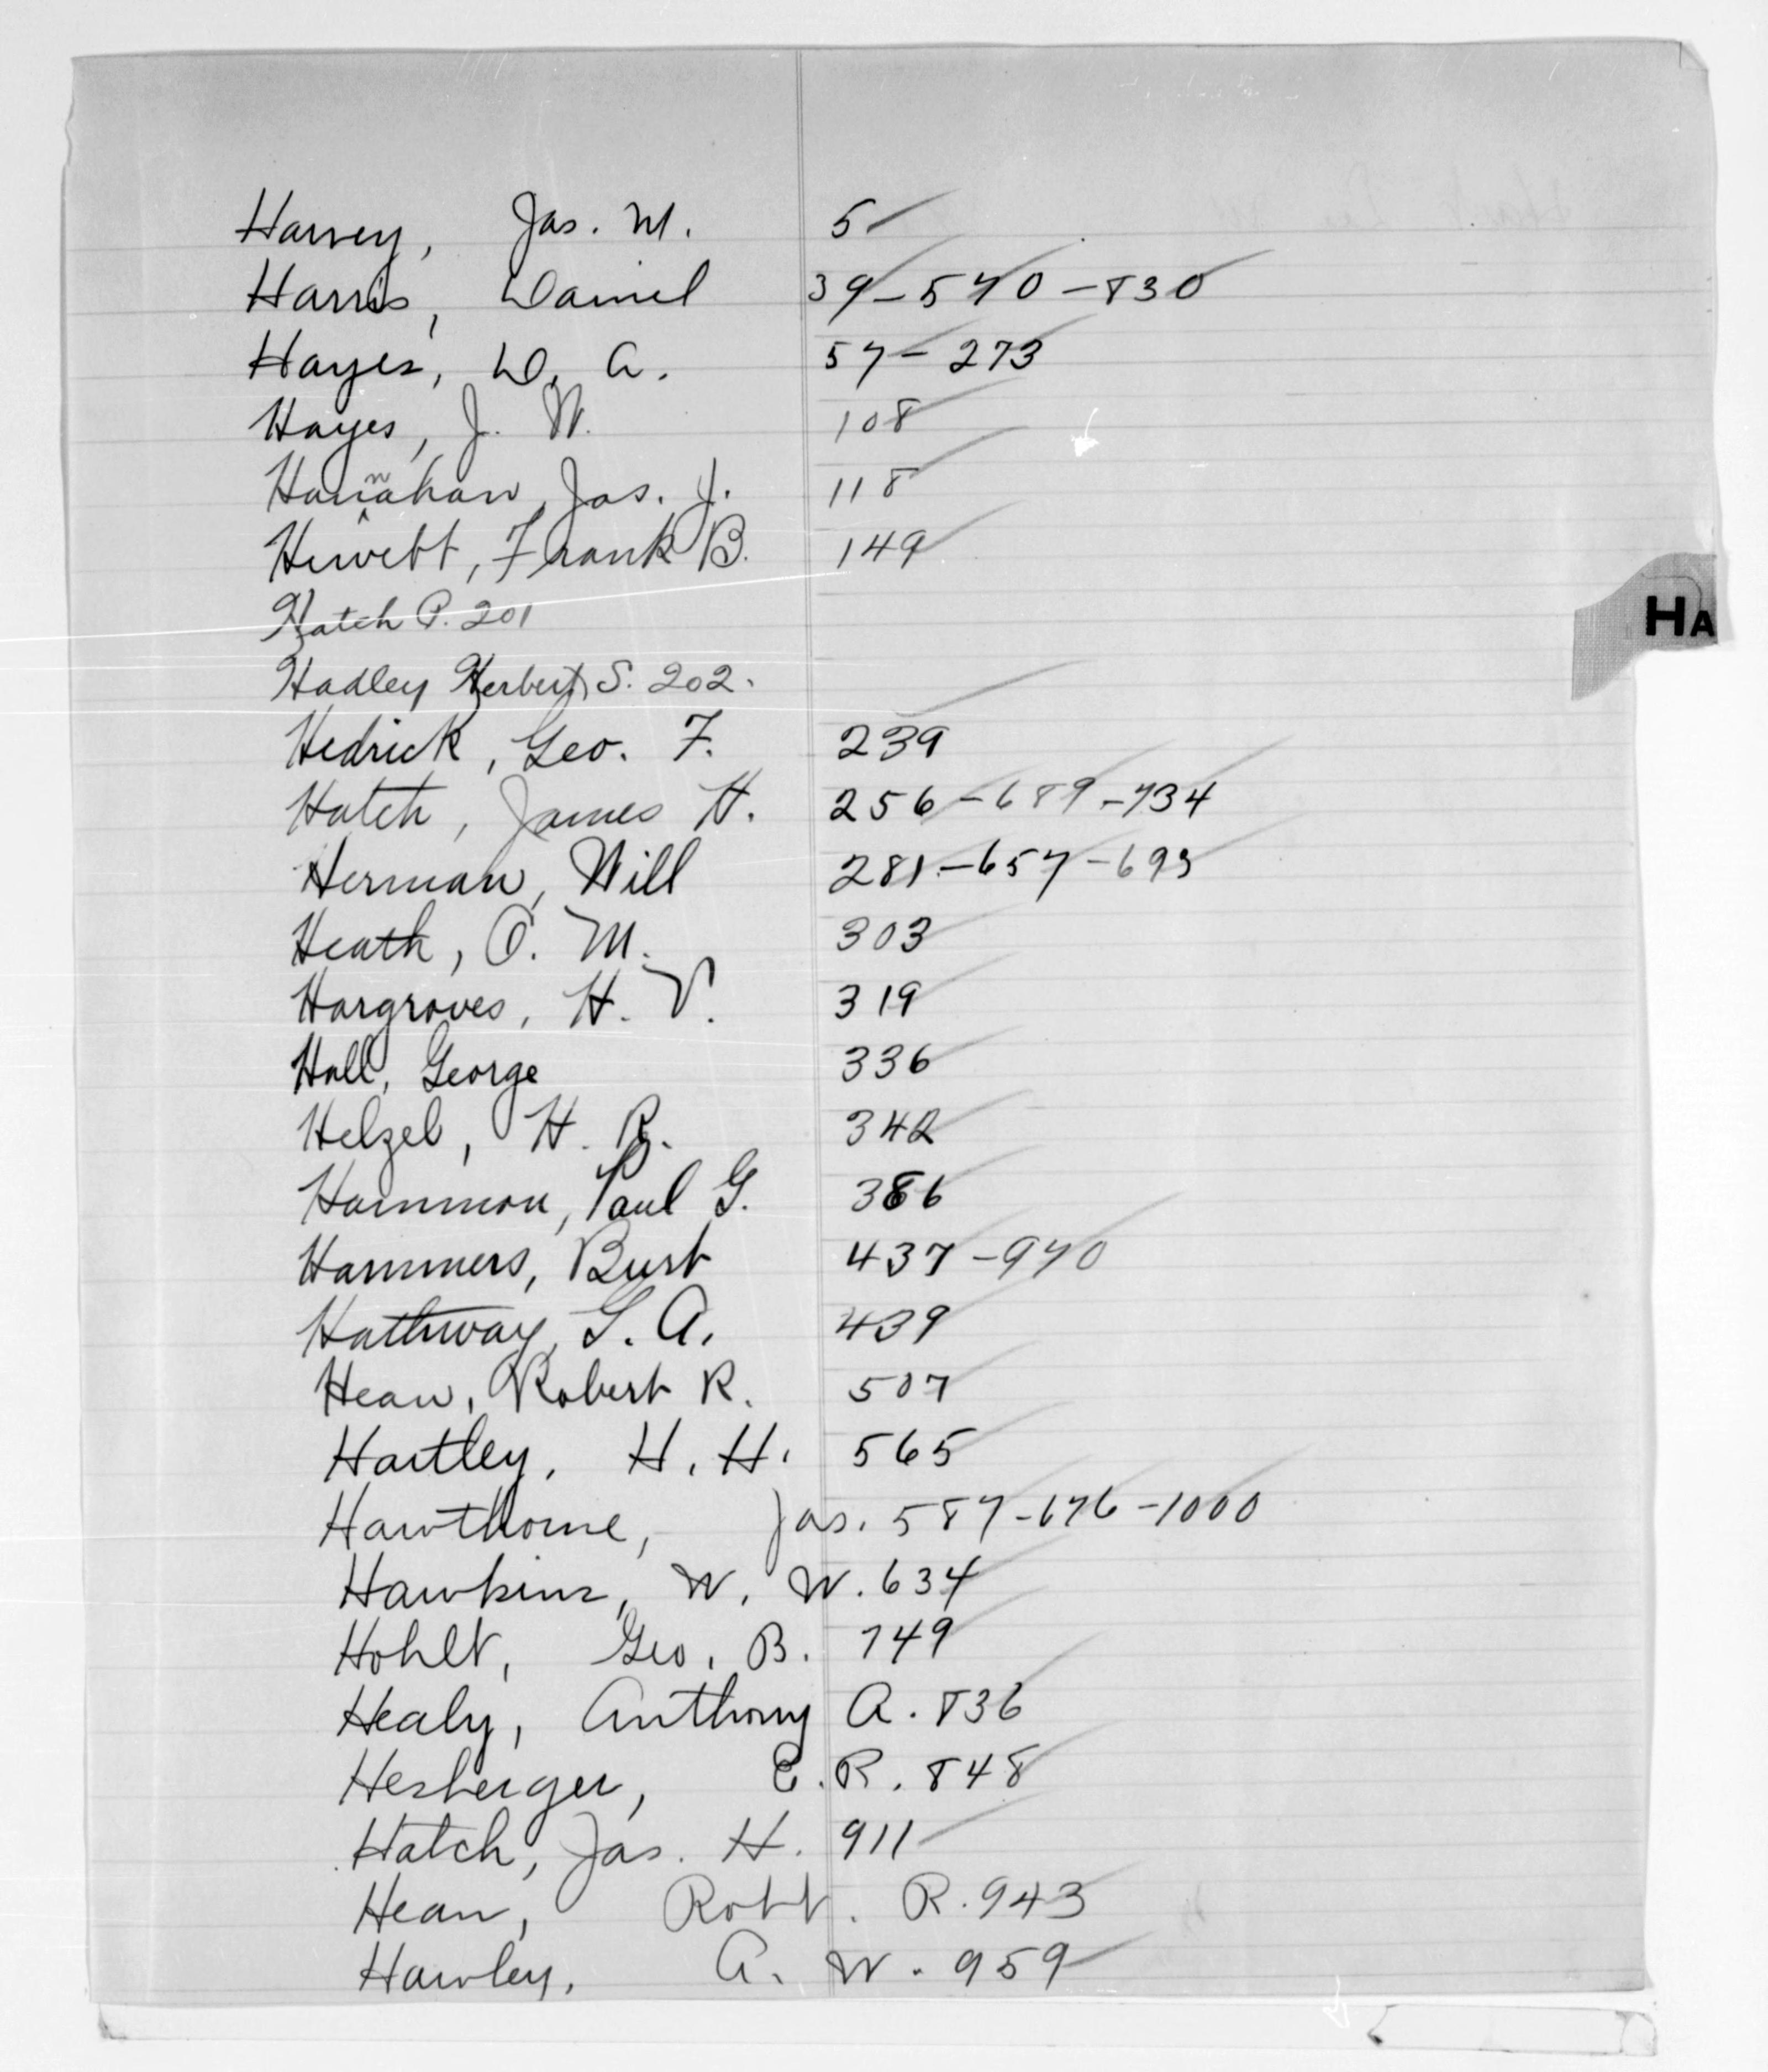 Harvey, Jas. M. 5
Harris, Daniel 39-570-830
Hayes, D. A. 57-273
Hayes, J. W. 108
Hannahan, Jas. J. 118
Hewett, Frank B. 149
Hatch P. 201
HA
Hadley Herbert S. 202.
Hedrick, Geo. F. 239
Hatch, James H. 256-689-734
Herman, Will 281-657-693
Heath, O. M. 303
Hargroves, H. V. 319
Hall, George 336
Helzel, H. R. 342
Hammon, Paul G. 386
Hammers, Burt 437-970
Hathway, G. A. 439
Hean, Robert R. 507
Hartley, H. H. 565
Hawthorne, Jas. 587-676-1000
Hawkins, W. W. 634
Hohlt, Geo. B. 749
Healy, Anthony A. 836
Hesberger, E. R. 848
Hatch, Jas. H. 911
Hean, Robt. R. 943
Hawley, A. W. 959